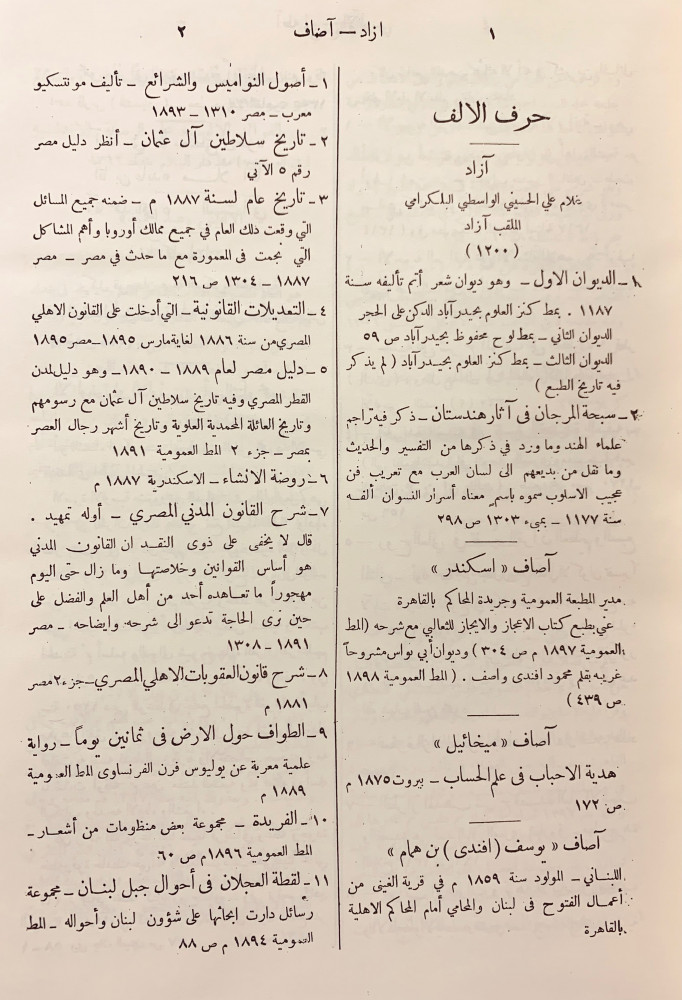 ١
ازاد — آصاف
٢
حرف الالف
آزاد
غلام علي الحسيني الواسطي البلكرامي
الملقب آزاد
( ١٢٠٠ )
١ ـ الديوان الاول ـ وهو ديوان شعر أتم تأليفه سنة
١١٨٧ . بمط كنز العلوم بحيدرآباد الدكن على الحجر
الديوان الثاني ـ بمط لوح محفوظ بحيدرآباد ص ٥٩
الديوان الثالث ـ بمط كنز العلوم بحيدرآباد ( لم يذكر
فيه تاريخ الطبع )
٢ ـ سبحة المرجان فى آثار هندستان ـ ذكر فيه تراجم
علماء الهند وما ورد في ذكرها من التفسير والحديث
وما نقل من بديعهم الى لسان العرب مع تعريب فن
عجيب الاسلوب سموه باسم معناه أسرار النسوان ألفه
سنة ١١٧٧ ـ بمبيء ١٣٠٣ ص ٢٩٨
آصاف « اسكندر »
مدير المطبعة العمومية وجريدة المحاكم بالقاهرة
عني بطبع كتاب الاعجاز والايجاز للثعالبي مع شرحه (المط
العمومية ١٨٩٧ م ص ٣٠٤ ) وديوان أبي نواس مشروحاً
غريبه بقلم محمود افندى واصف . ( المط العمومية ١٨٩٨
ص ٤٣٩ )
آصاف « ميخائيل »
هدية الاحباب فى علم الحساب ـ بيروت ١٨٧٥ م
ص ١٧٢
آصاف « يوسف ( افندى ) بن همام »
اللبناني ـ المولود سنة ١٨٥٩ م في قرية الغينى من
أعمال الفتوح فى لبنان والمحامي أمام المحاكم الاهلية
بالقاهرة
١ ـ أصول النواميس والشرائع ـ تأليف مونتسكيو
معرب ـ مصر ١٣١٠ ـ ١٨٩٣
٢ ـ تاريخ سلاطين آل عثمان ـ أنظر دليل مصر
رقم ٥ الآتي
٣ ـ تاريخ عام لسنة ١٨٨٧ م ـ ضمنه جميع المسائل
التي وقعت ذلك العام في جميع ممالك أوروبا وأهم المشاكل
التي نجمت فى المعمورة مع ما حدث في مصر ـ مصر
١٨٨٧ ـ ١٣٠٤ ص ٢١٦
٤ ـ التعديلات القانونية ـ التي أدخلت على القانون الاهلي
المصري من سنة ١٨٨٦ لغاية مارس ١٨٩٥ ـ مصر ١٨٩٥
٥ ـ دليل مصر لعام ١٨٨٩ ـ ١٨٩٠ ـ وهو دليل لمدن
القطر المصري وفيه تاريخ سلاطين آل عثمان مع رسومهم
وتاريخ العائلة المحمدية العلوية وتاريخ أشهر رجال العصر
بمصر ـ جزء ٢ المط العمومية ١٨٩١
٦ ـ روضة الانشاء ـ الاسكندرية ١٨٨٧ م
٧ ـ شرح القانون المدني المصري ـ أوله تمهيد .
قال لا يخفى على ذوى النقد ان القانون المدني
هو أساس القوانين وخلاصتها وما زال حتى اليوم
مهجوراً ما تعاهده أحد من أهل العلم والفضل على
حين نرى الحاجة تدعو الى شرحه وايضاحه ـ مصر
١٨٩١ ـ ١٣٠٨
٨ ـ شرح قانون العقوبات الاهلي المصري ـ جزء ٢ مصر
١٨٨١ م
٩ ـ الطواف حول الارض فى ثمانين يوماً ـ رواية
علمية معربة عن يوليوس فرن الفرنساوى المط العمومية
١٨٨٩ م
١٠ ـ الفريدة ـ مجموعة بعض منظومات من أشعار ـ
المط العمومية ١٨٩٦ م ص ٦٠
١١ ـ لقطة العجلان فى أحوال جبل لبنان ـ مجموعة
رسائل دارت ابحاثها على شؤون لبنان وأحواله ـ المط
العمومية ١٨٩٤ م ص ٨٨